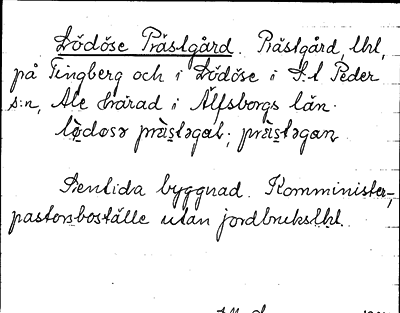 Lödöse Prästgård. Prästgård, lhl,
på Tingberg och i Lödöse i S:t Peder
s:n, Ale härad i Älfsborgs län.
lø̀dosə præ̀stəgaḷ; præ̀stəgan
Nentida byggnad. Komminister-,
pastorsboställe utan jordbrukslhl.